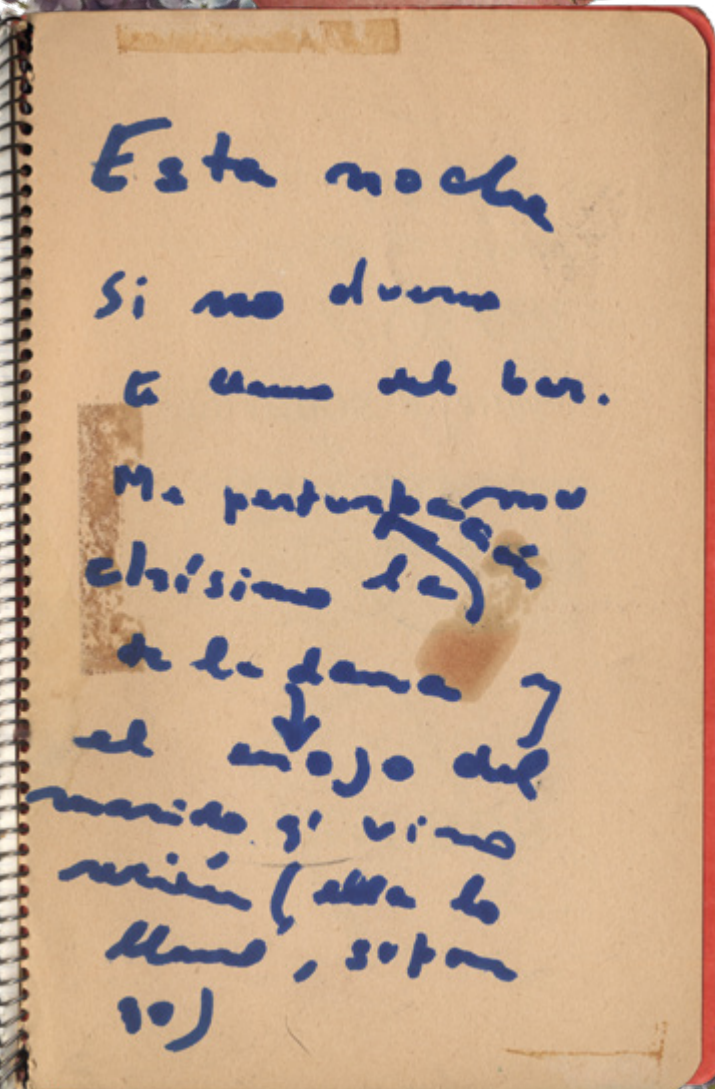 Esta noche
si no duermo
te llamo del bar.
Me perturba mu
chísimo la
de la dama y
el enojo del
marido q' vino
recién (ella lo
llamó, supon
go)